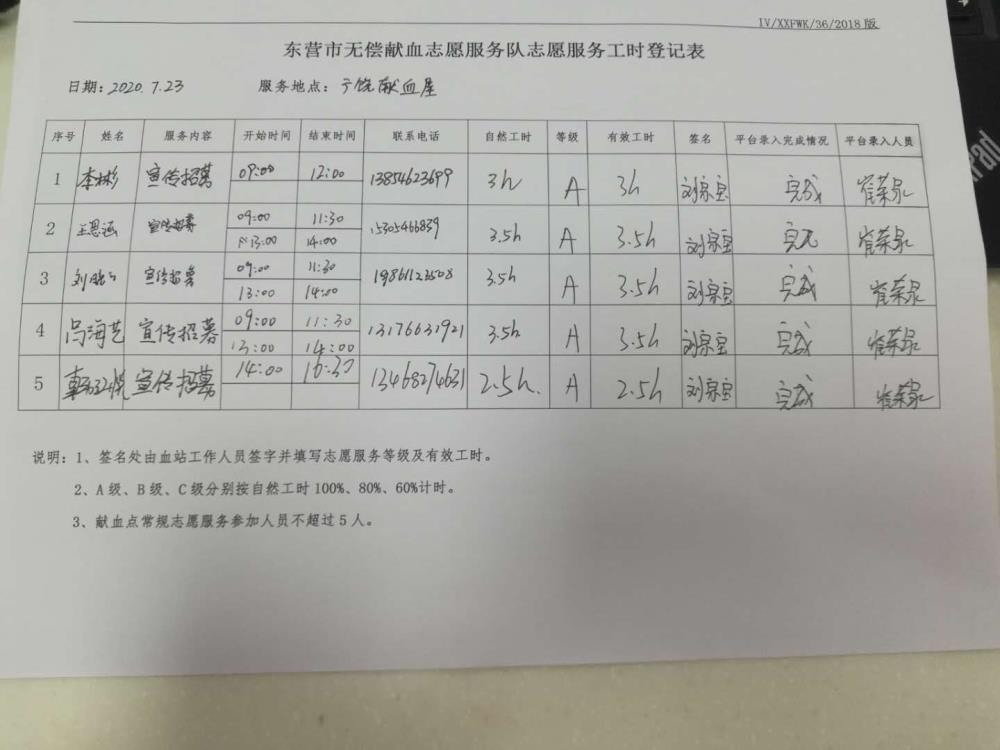 IV/XXFWK/36/2018版
东营市无偿献血志愿服务队志愿服务工时登记表
日期：2020.7.23 服务地点：广饶献血屋
序号 姓名 服务内容 开始时间 结束时间 联系电话 自然工时 等级 有效工时 签名 平台录入完成情况 平台录入人员
1 李彬彬 宣传招募 09:00 12:00 13854623699 3h A 3h 刘宗宝 完成 崔荣泉
2 王恩涵 宣传招募 09:00 11:30 15305466839 3.5h A 3.5h 刘宗宝 完成 崔荣泉
13:00 14:00
3 刘 宣传招募 09:00 11:30 19861123508 3.5h A 3.5h 刘宗宝 完成 崔荣泉
13:00 14:00
4 吕海艺 宣传招募 09:00 11:30 13176631921 3.5h A 3.5h 刘宗宝 完成 崔荣泉
13:00 14:00
5 宣传招募 14:00 16:30 13468274631 2.5h. A 2.5h 刘宗宝 完成 崔荣泉
说明：1、签名处由血站工作人员签字并填写志愿服务等级及有效工时。
2、A级、B级、C级分别按自然工时100%、80%、60%计时。
3、献血点常规志愿服务参加人员不超过5人。